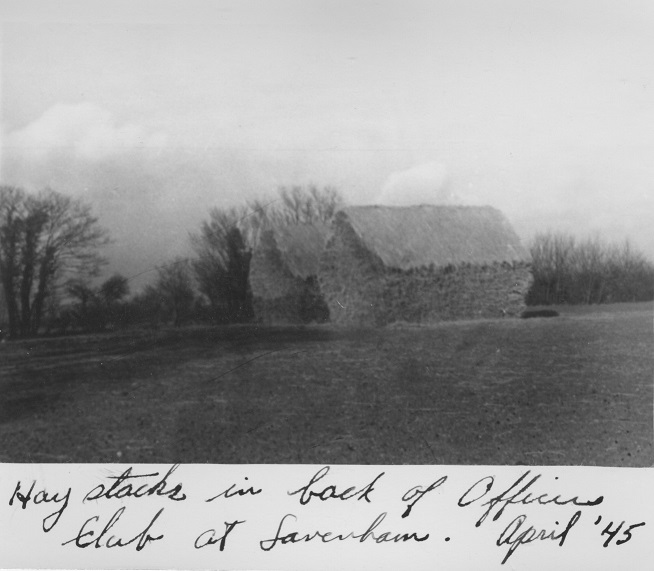 Hay stacks in back of Officers
Club at Lavenham. April '45